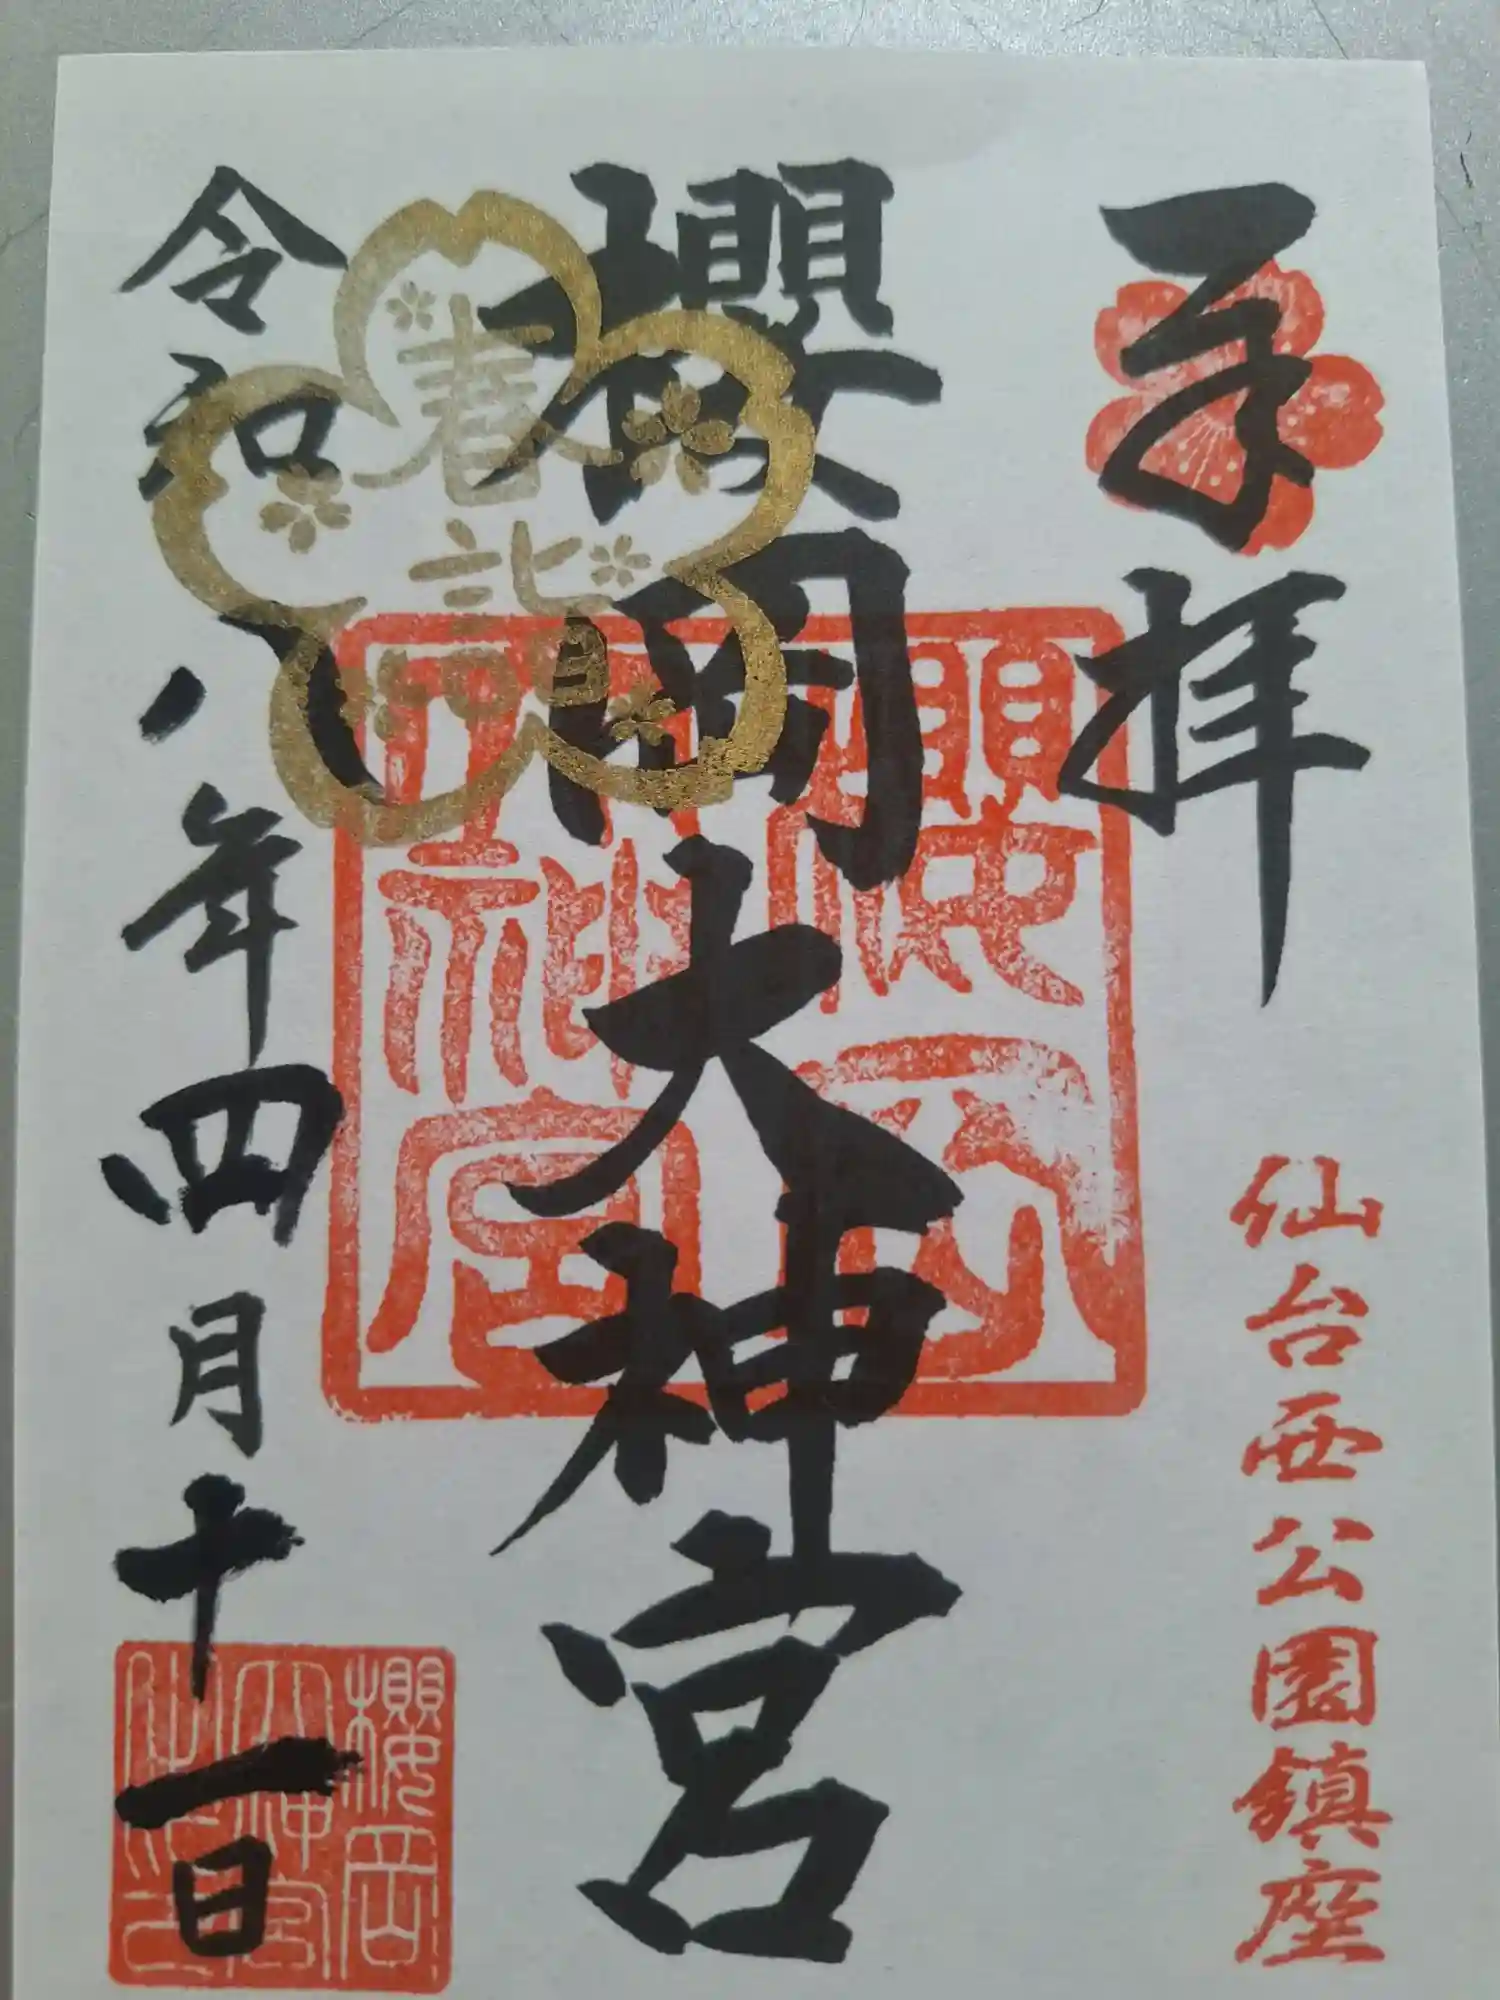 奉拝
仙台西公園鎮座
櫻岡大神宮
春詣
令和八年四月十一日
櫻岡
大神宮